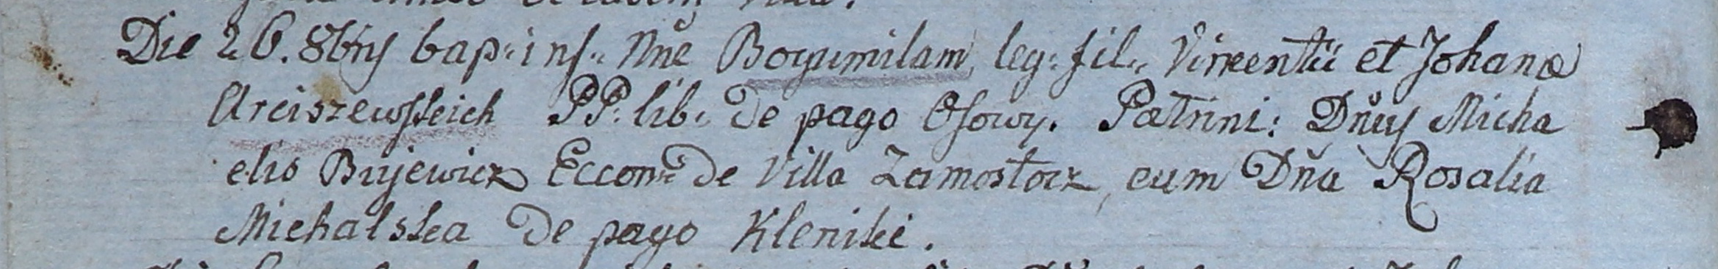 Die 26. 8bris bap: inf: Nne Bogumilam, leg: fil: Vincentii et Johanæ
Arciszewskich PP. lib: De pago Osowy. Patrini: Dnus Micha
elis Bujewicz Econ: De Villa Zamostocz, cum Dna Rosalia
Michalska De pago Kleniki.